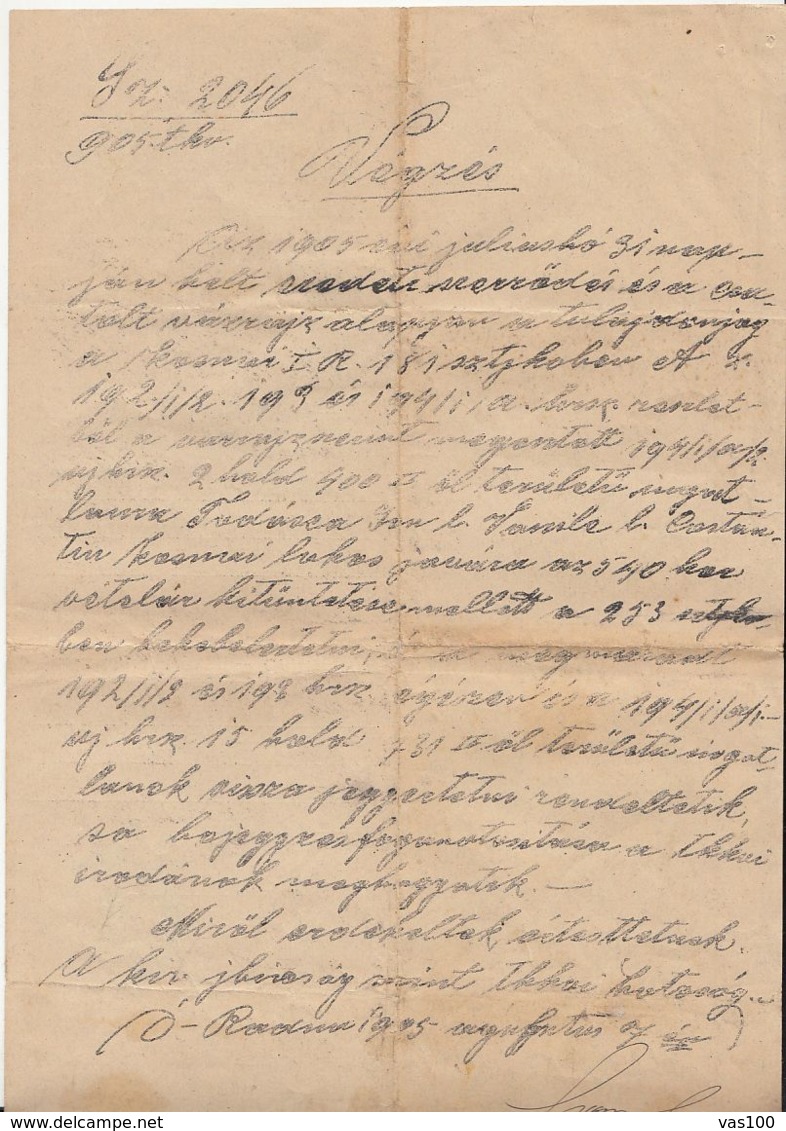 Sz: 2046
905 tkv.
Végzés
Az 1905 évi julius hó 31 nap-
ján kelt eredeti szerződés és a csa-
tolt vázrajz alapján a tulajdonjog
a kosnai I. R. 181 sztjkvben A
192/1/2. 193 és 194/1/a. hrsz. részlet-
ből a vázrajz szerint megosztott 194/1/a/2.
uj hrsz. 2 hold 400 □ öl területű ingat-
lanra Todásca Ion l. Vasile l. Costan-
tin kosnai lakos javára az 540 kor
vételár kitüntetése mellett a 253 sztjkv-
ben bekebeleztetni, és a megmaradt
192/1/2 és 193 hrsz. egészen és a 194/1/a/1.-
uj hrsz. 15 hold 731 □ öl területű ingat-
lanok vissza jegyeztetni rendeltetik,
s a bejegyzés foganatosítása a tkkvi
irodának meghagyatik. —
Miről érdekeltek értesíttetnek.
A kir. jbíróság mint tkkvi hatóság.
Ó-Radna 1905 augusztus 7 én
vas100